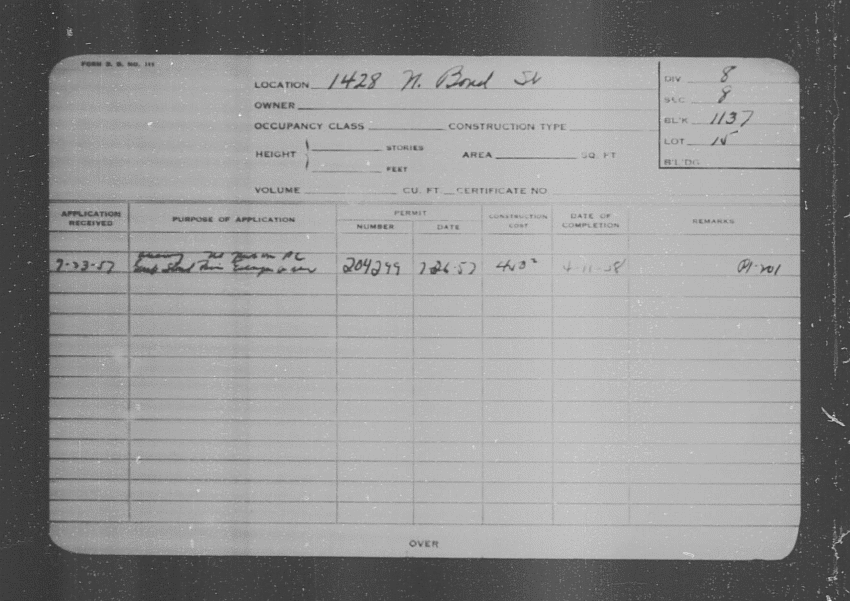 FORM B. B. NO. 111
LOCATION 1428 N. Bond St
OWNER
OCCUPANCY CLASS CONSTRUCTION TYPE
HEIGHT STORIES FEET AREA SQ. FT
VOLUME CU. FT CERTIFICATE NO
DIV. 8
SEC. 8
BL'K 1137
LOT 15
B'L'DG
APPLICATION RECEIVED PURPOSE OF APPLICATION PERMIT NUMBER DATE CONSTRUCTION COST DATE OF COMPLETION REMARKS
7-23-57 204299 7-26-57 4-11-58
OVER